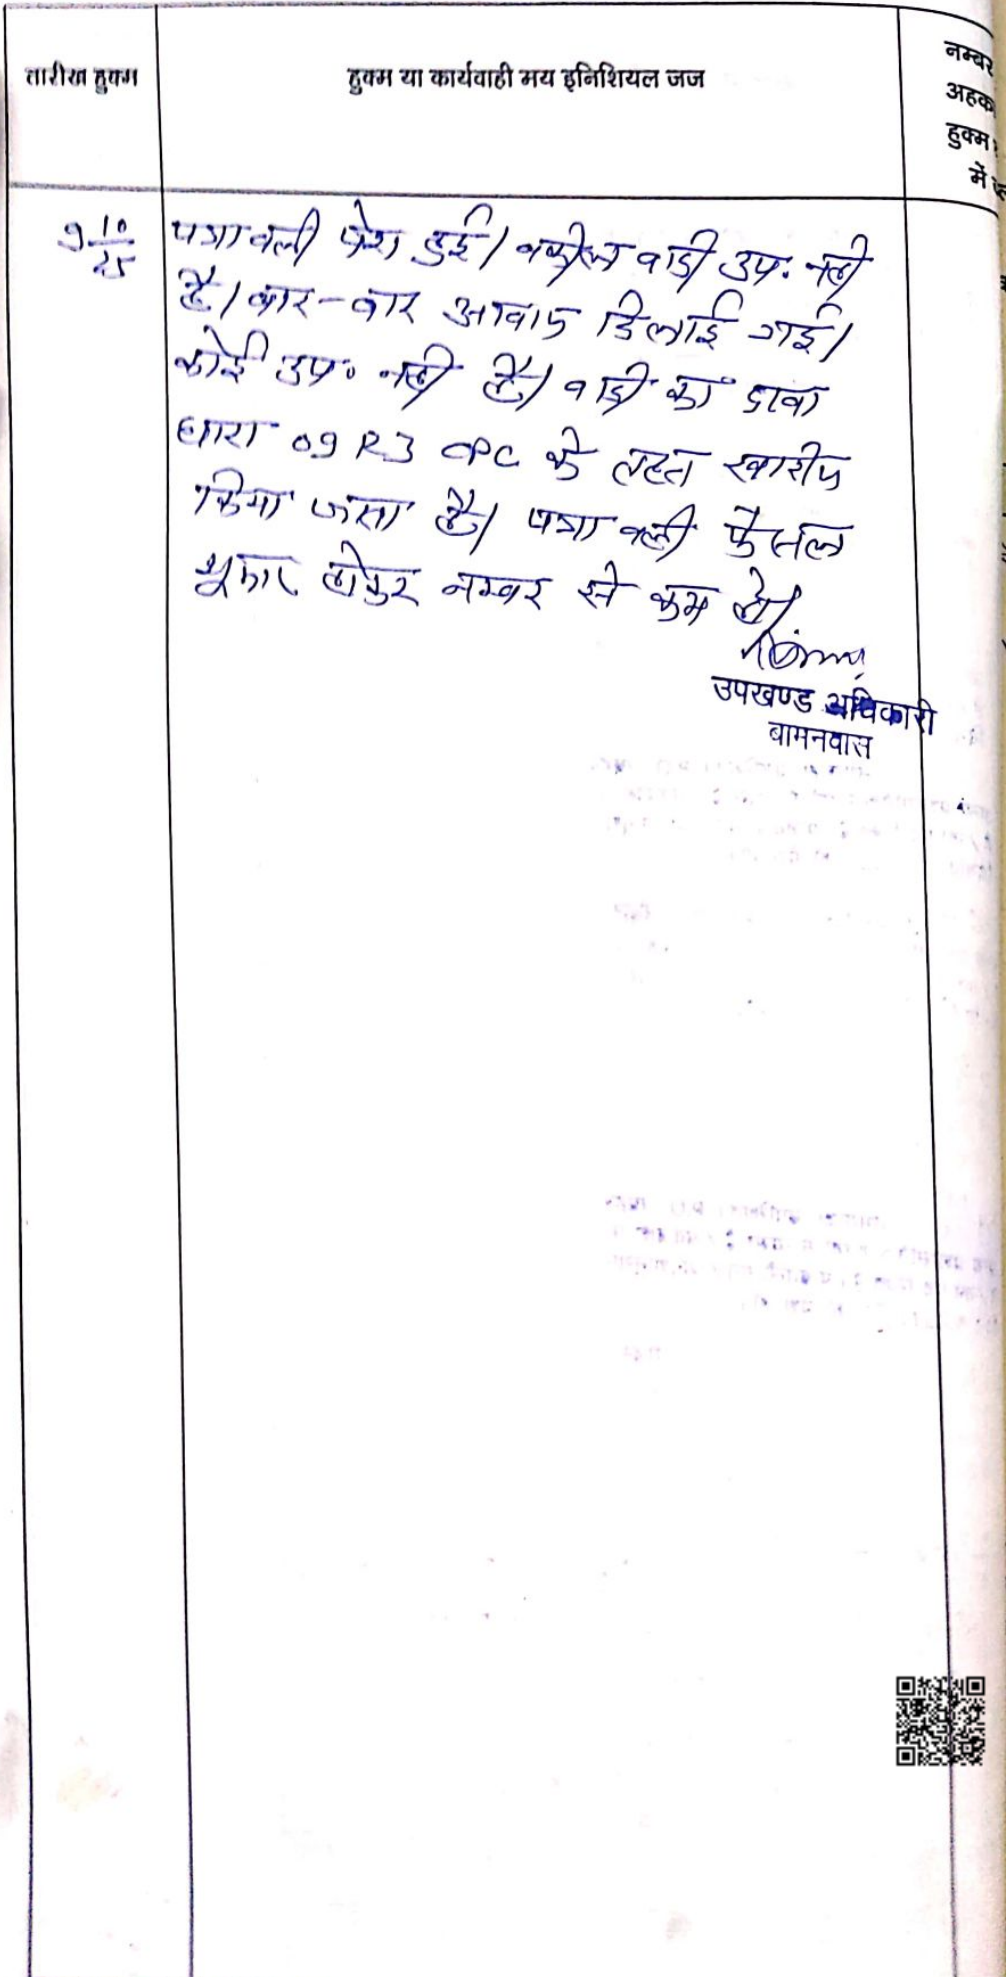 तारीख हुक्म
हुक्म या कार्यवाही मय इनिशियल जज
नम्बर
अहका
हुक्म
में
9 10/25
पत्रावली पेश हुई। वकील वादी उप. नही
है। बार-बार आवाज दिलाई गई।
कोई उप. नही है। वादी का दावा
धारा 09 R3 CPC के तहत खारीज
किया जाता है। पत्रावली फैसल
शुमार होकर नम्बर से कम हो।
उपखण्ड अधिकारी
बामनवास